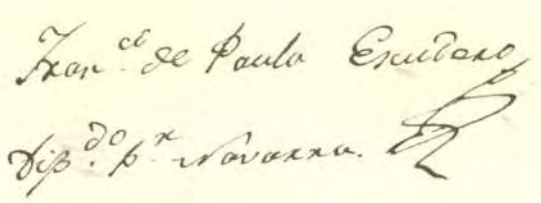 Fran.co de Paula Escudero
Dip.do p.r Navarra.